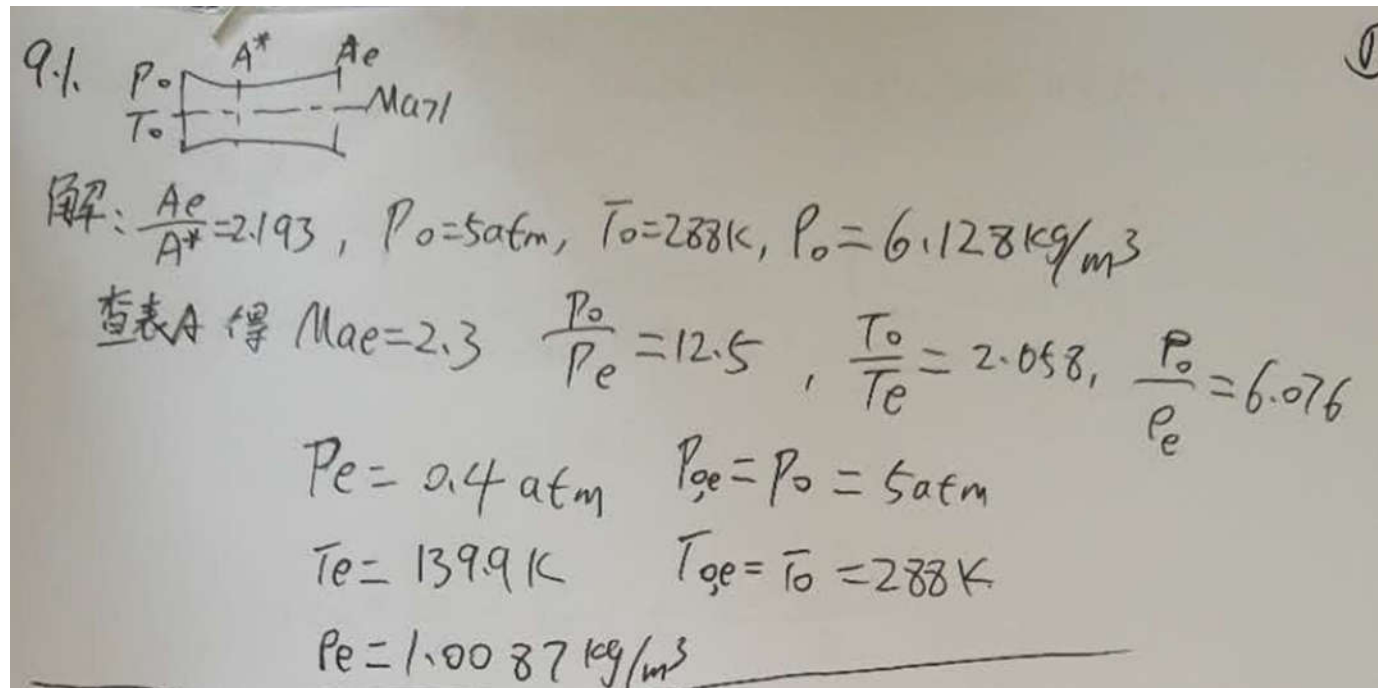 9.1.
P₀ A* Ae ①
T₀ Ma>1
解: Ae/A* = 2.193, P₀=5atm, T₀=288K, ρ₀=6.128kg/m³
查表A 得 Mae=2.3 P₀/Pe =12.5, T₀/Te = 2.058, ρ₀/ρe =6.076
Pe= 0.4 atm P₀,e=P₀ = 5atm
Te= 139.9K T₀,e= T₀ =288K
ρe=1.0087kg/m³